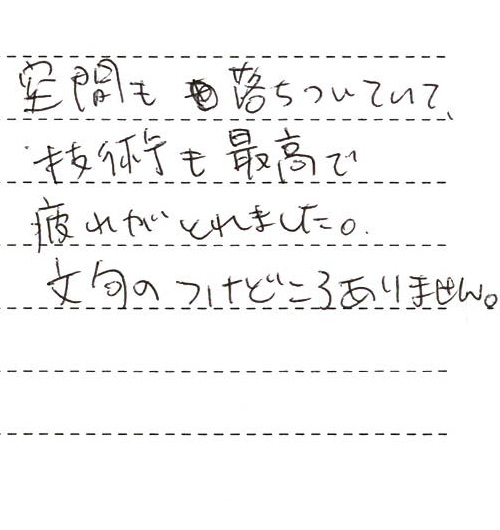 空間も落ちついていて、
技術も最高で
疲れがとれました。
文句のつけどころありません。